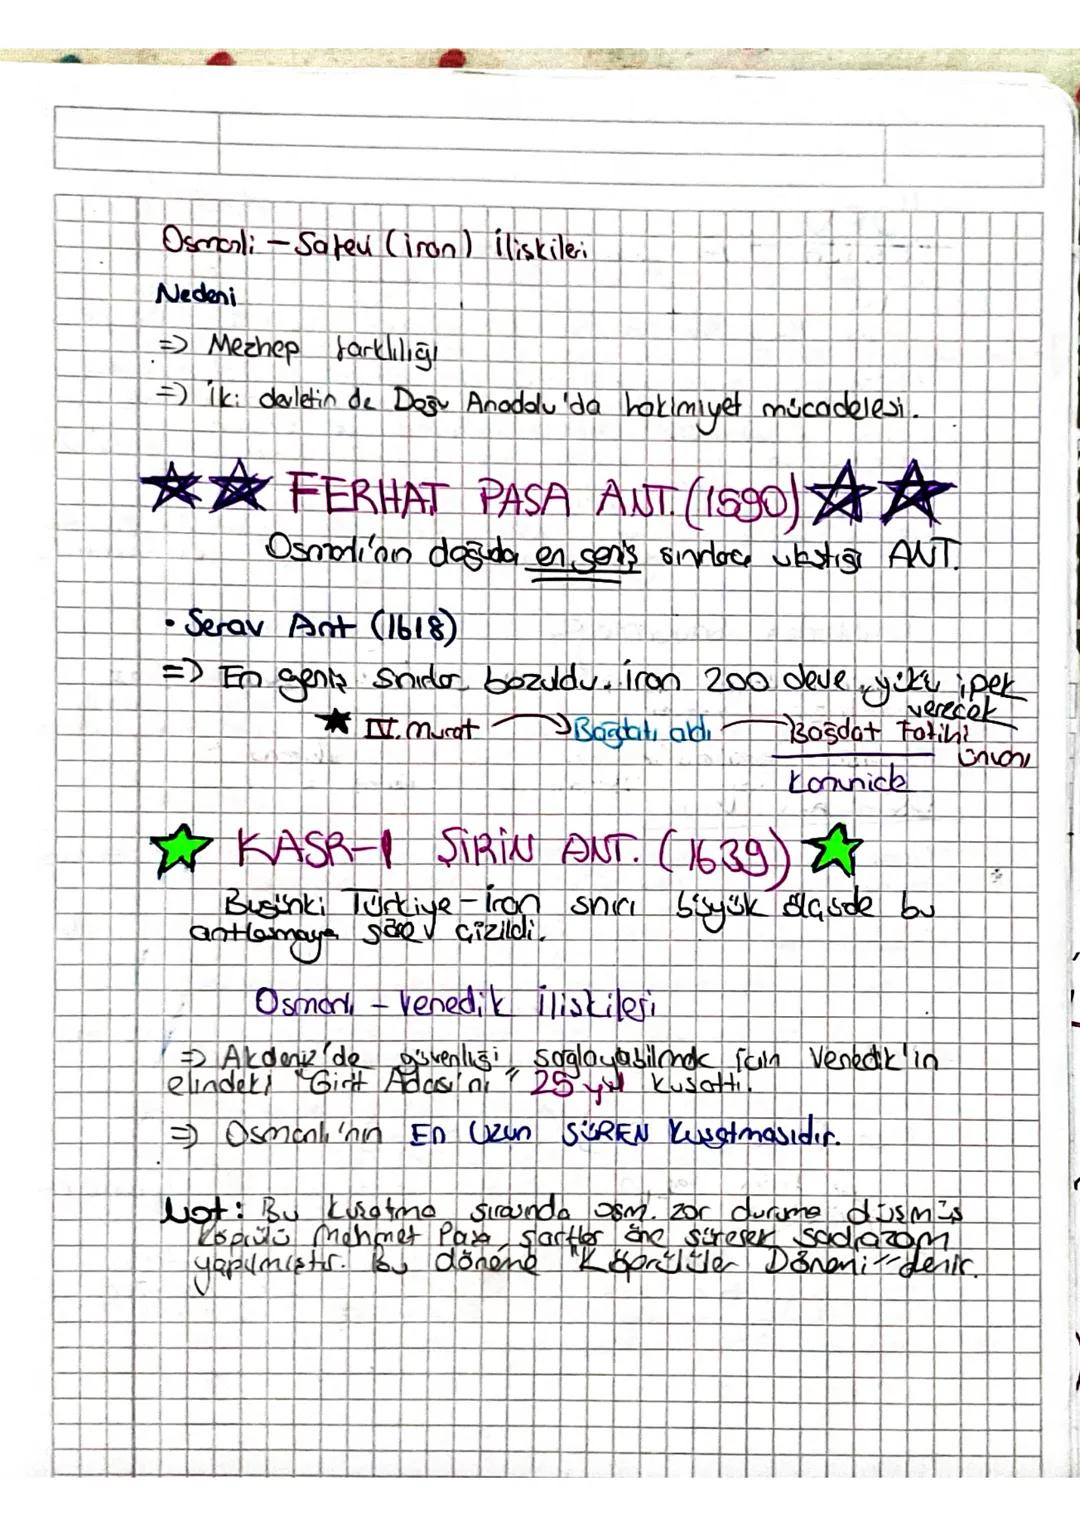 Osmanlı - Safevi (İran) İlişkileri
Nedeni
=> Mezhep farklılığı
=> İki devletin de Doğu Anadolu'da hakimiyet mücadelesi.
FERHAT PAŞA ANT. (1590)
Osmanlı'nın doğuda en geniş sınırlara ulaştığı ANT.
• Serav Ant (1618)
=> En geniş sınırlar bozuldu. İran 200 deve yükü ipek
verecek
IV. Murat → Bağdatı aldı → Bağdat Fatihi
ünvanı
Kanunide
KASR-I ŞİRİN ANT. (1639)
Bugünki Türkiye-İran sınırı büyük ölçüde bu
antlaşmaya göre çizildi.
Osmanlı - Venedik İlişkileri
=> Akdeniz'de güvenliği sağlayabilmek için Venedik'in
elindeki "Girit Adası'nı" 25 yıl kuşattı.
=> Osmanlı'nın En Uzun SÜREN Kuşatmasıdır.
Not: Bu kuşatma sırasında osm. zor duruma düşmüş
Köprülü Mehmet Paşa şartlar öne sürerek sadrazam
yapılmıştır. Bu döneme "Köprülüler Dönemi" denir.